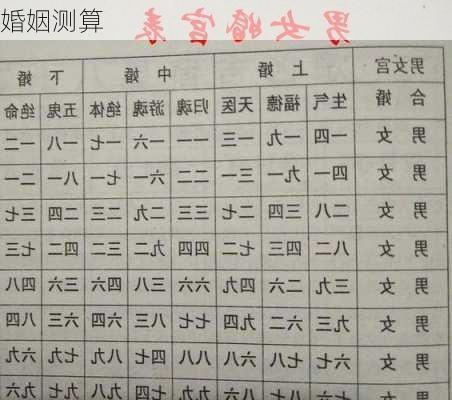 婚姻测算
男女婚宫表
男女宫 上婚 中婚 下婚
合婚 生气 福德 天医 归魂 游魂 绝体 五鬼 绝命
男女 一四 一九 一三 一一 一六 一七 一八 一二
男女 四一 九一 三一 二二 六一 七一 八一 二一
男女 二八 三四 二七 三三 二九 二三 二四 三七
男女 八二 四三 七二 四四 九二 三二 四二 七三
男女 三九 二六 四九 六六 三八 四六 三六 四八
男女 九三 六二 九四 七七 八三 六四 六三 八四
男女 六七 七八 六八 八八 四七 八九 七九 六九
男女 七六 八七 八六 九九 七四 九八 九七 九六